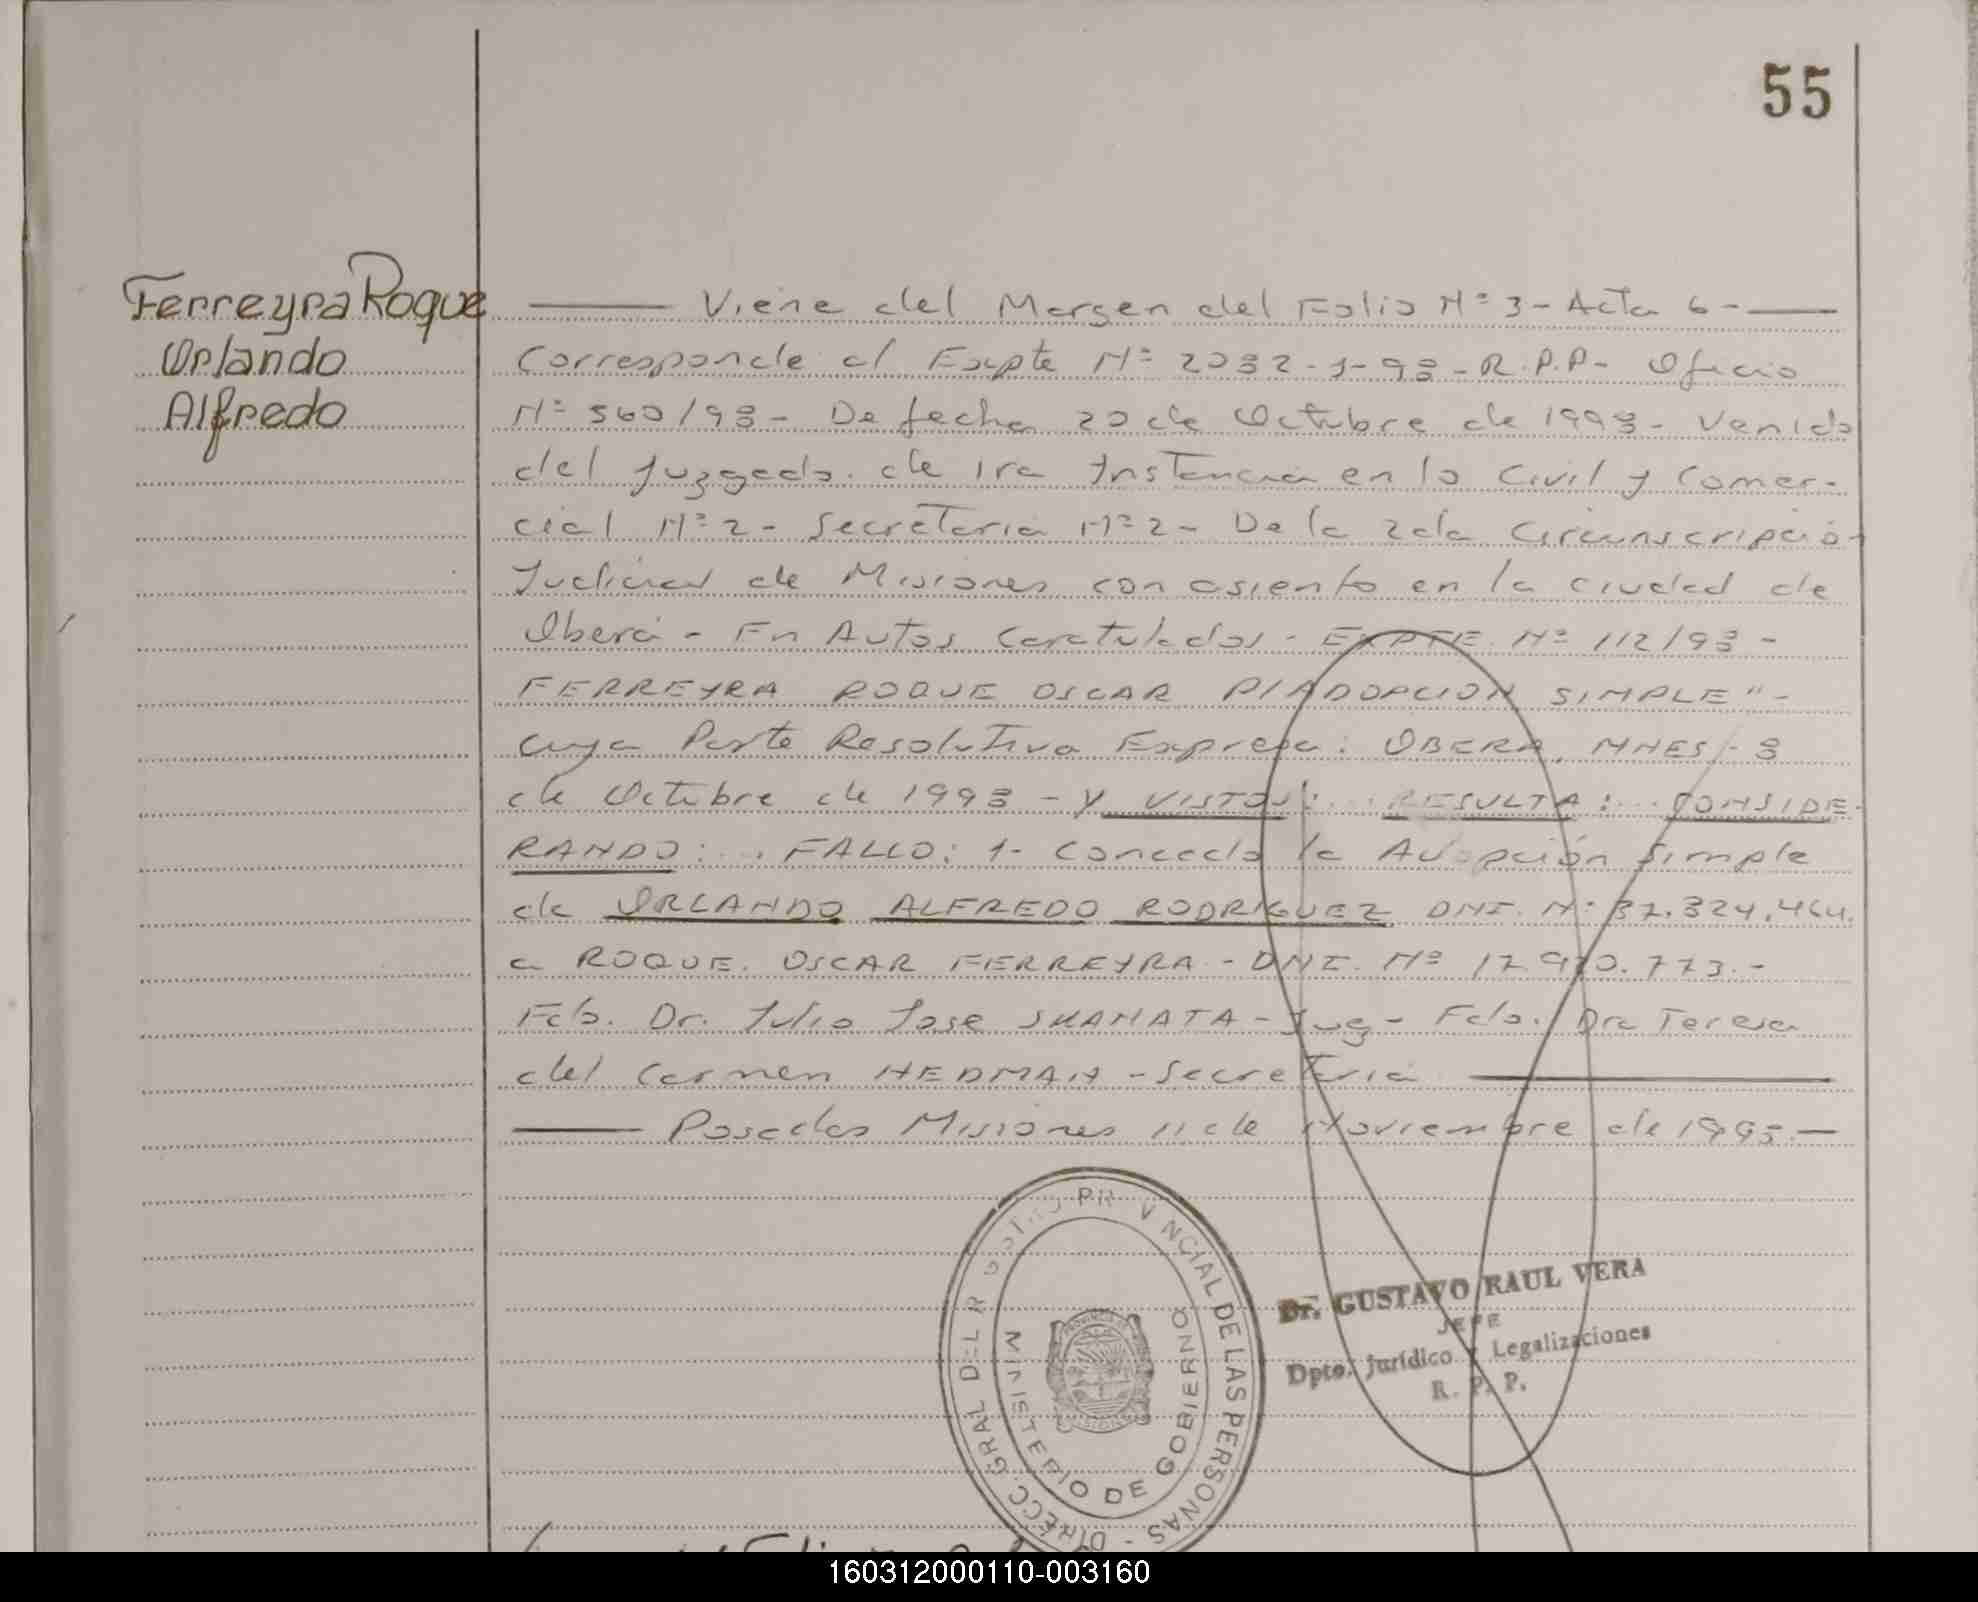 55
Ferreyra Roque
Orlando
Alfredo
—— Viene del Margen del Folio Nº 3 - Acta 6 - ——
Corresponde al Expte Nº 2032-J-93 - R.P.P - Oficio
Nº 560/93 - De fecha 20 de Octubre de 1993 - Venido
del Juzgado de 1ra Instancia en lo Civil y Comer-
cial Nº 2 - Secretaria Nº 2 - De la 2da Circunscripción
Judicial de Misiones con asiento en la ciudad de
Oberá - En Autos Caratulados - EXPTE Nº 112/93 -
FERREYRA ROQUE OSCAR P/ADOPCION SIMPLE" -
cuya Parte Resolutiva Expresa: OBERA, MNES - 8
de Octubre de 1993 - Y VISTOS:... RESULTA:... CONSIDE-
RANDO:... FALLO: 1- Concedo la Adopción Simple
de ORLANDO ALFREDO RODRIGUEZ DNI. Nº 37.324.464.
a ROQUE OSCAR FERREYRA - DNI. Nº 17.970.773.-
Fdo. Dr. Julio Jose SKANATA - Juez - Fdo. Dra Teresa
del Carmen HEDMAN - Secretaria ——
—— Posadas Misiones 11 de Noviembre de 1995.—
DIRECC. GRAL DEL REGISTRO PROVINCIAL DE LAS PERSONAS -
MINISTERIO DE GOBIERNO
Dr. GUSTAVO RAUL VERA
JEFE
Dpto. Jurídico y Legalizaciones
R. P. P.
160312000110-003160